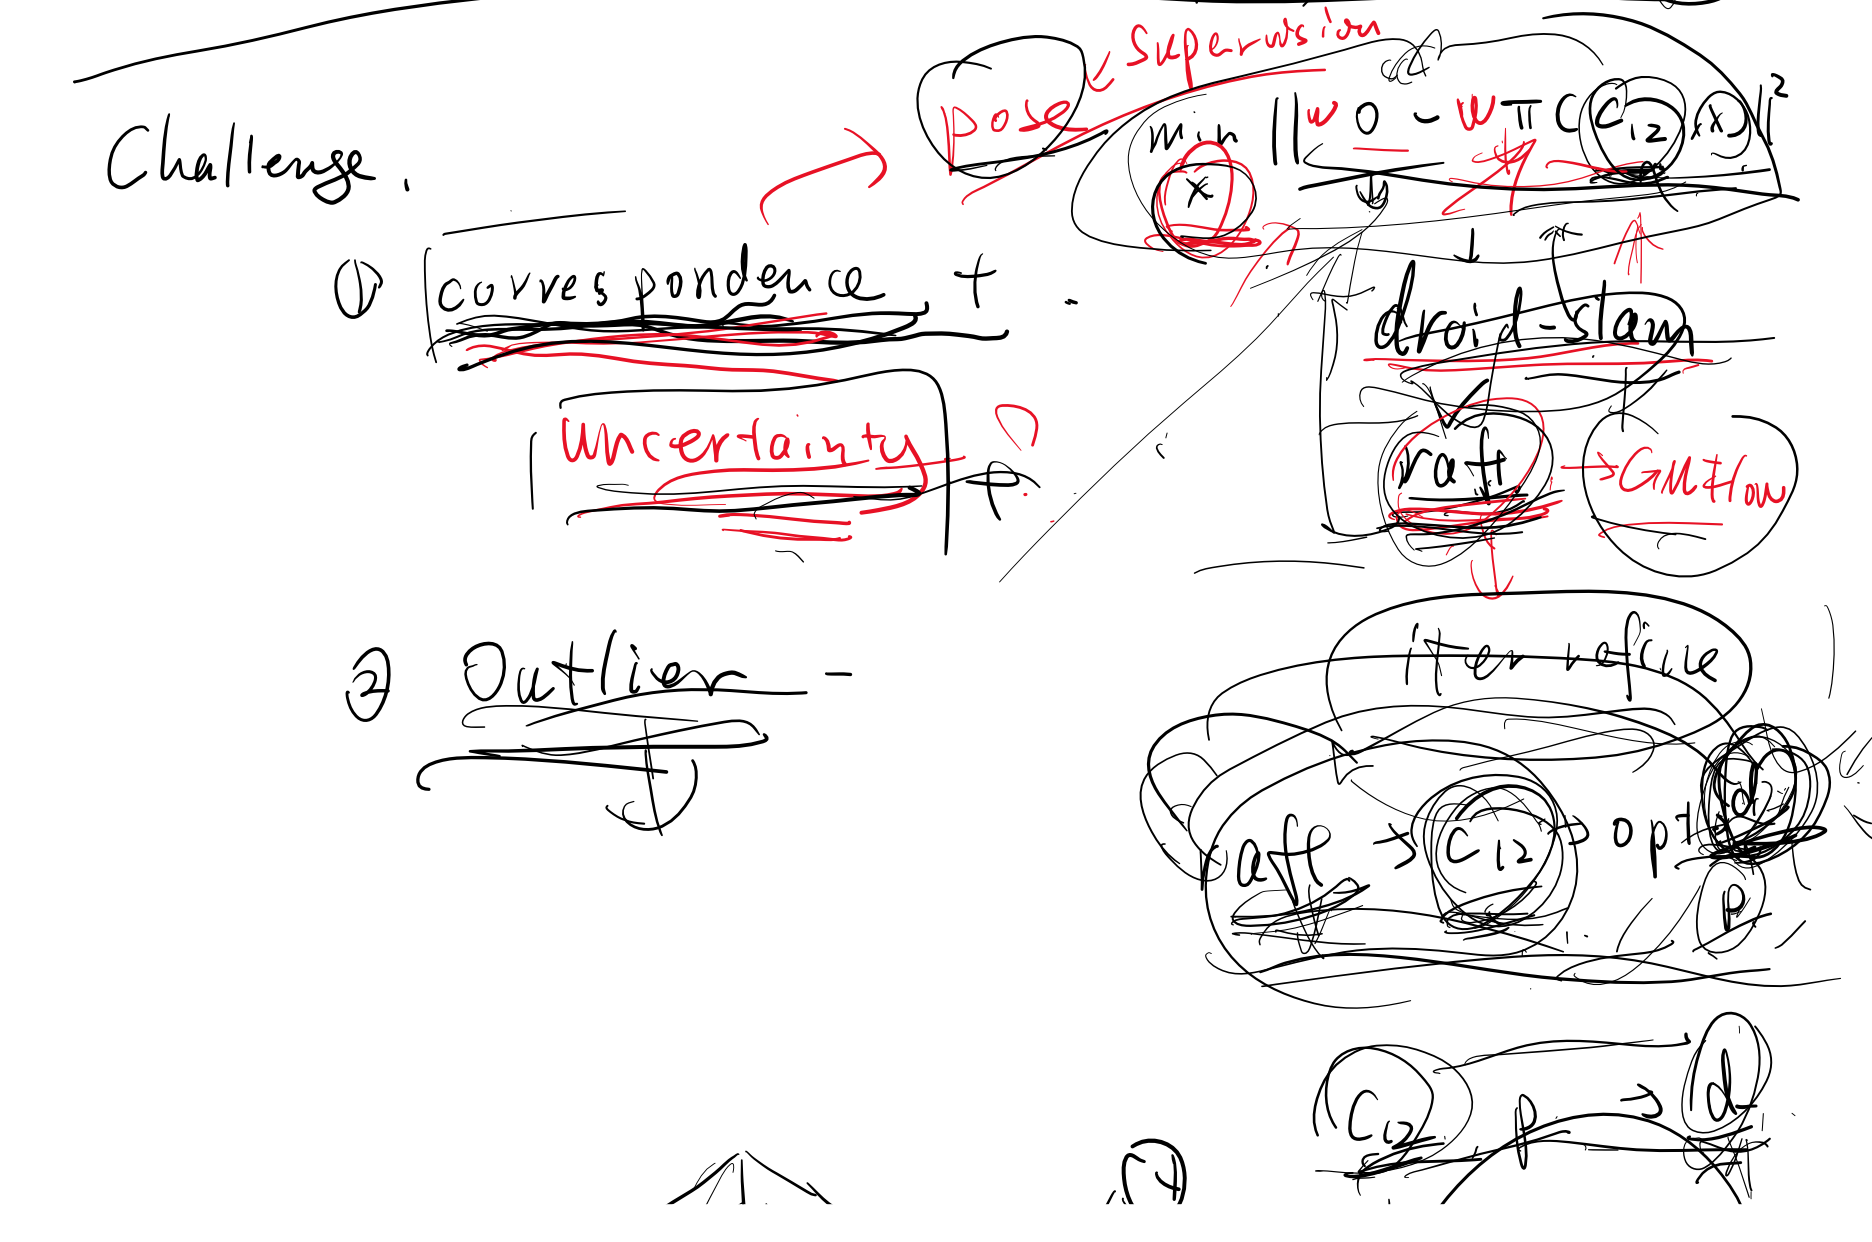 Challenge.
① correspondence +
uncertainty
② Outlier -
pose
Supervision
min || w O - w π ( C12, x ) ||²
x
droid-slam
raft → GMFlow
iter refine
raft → C12 → opt d
p
C12, p → d